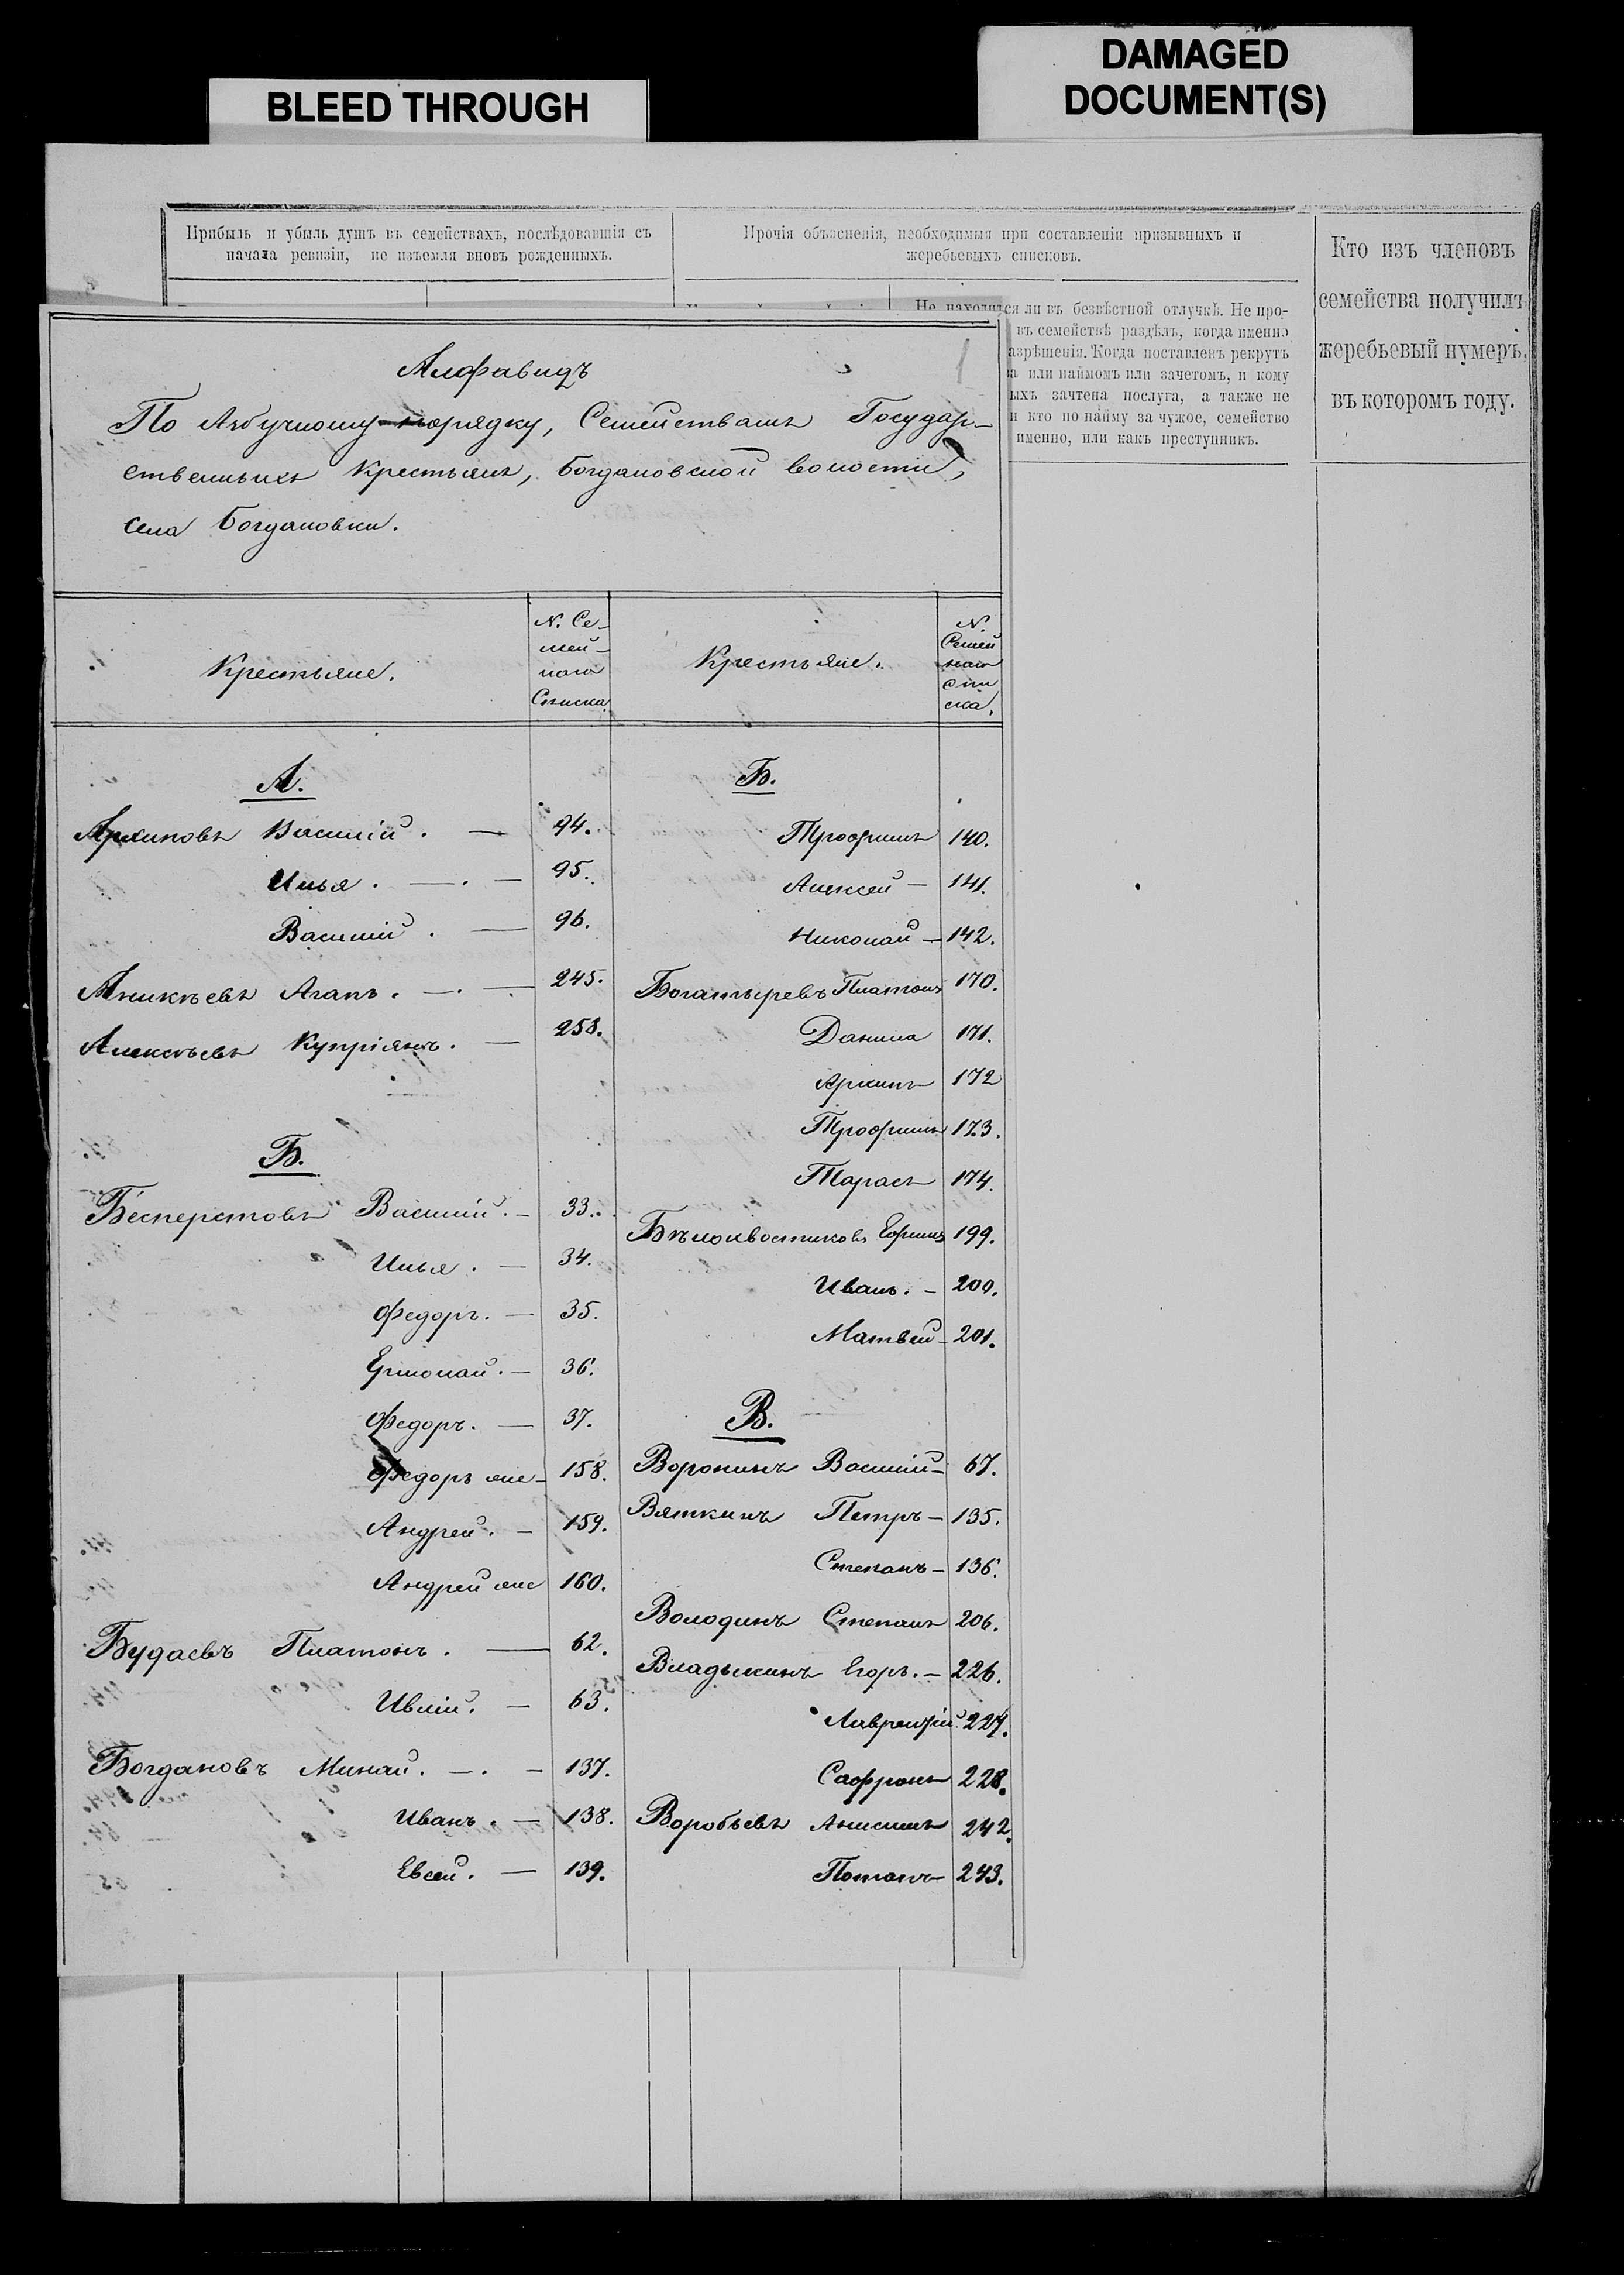 DAMAGED
DOCUMENT(S)
BLEED THROUGH
Прибыль и убыль душъ въ семействахъ, послѣдовавшія съ
начала ревизіи, не изъемля вновь рожденныхъ.
Прочія объясненія, необходимыя при составленіи призывныхъ и
жеребьевыхъ списковъ.
Кто изъ членовъ
семейства получилъ
жеребьевый нумеръ,
въ которомъ году.
Не находился ли въ безвѣстной отлучкѣ. Не про-
въ семействѣ раздѣлъ, когда именно
азрѣшенія. Когда поставленъ рекрутъ
а или наймомъ или зачетомъ, и кому
ыхъ зачтена послуга, а также не
и кто по найму за чужое, семейство
именно, или какъ преступникъ.
1
Алфавидъ
По Азбучному порядку, Семействамъ Государ-
ственныхъ Крестьянъ, Богдановской волости,
села Богдановки.
Крестьяне.
N. Се-
мей-
наго
Списка
Крестьяне.
N.
Семей
наго
спи
ска.
А.
Архиповъ Василій. — 94.
Илья. — 95.
Василій. — 96.
Аникѣевъ Агапъ. — 245.
Алексѣевъ Купріянъ. — 258.
Б.
Бесперстовъ Василій. — 33.
Илья. — 34.
Федоръ. — 35.
Ермолай. — 36.
Федоръ. — 37.
Федоръ же — 158.
Андрей. — 159.
Андрей же 160.
Будаевъ Платонъ. — 62.
Ивлій. — 63.
Богдановъ Минай. — 137.
Иванъ. — 138.
Евсей. — 139.
Б.
Трофимъ 140.
Алексей — 141.
Николай — 142.
Богатыревъ Платонъ 170.
Данила 171.
Архипъ 172
Трофимъ 173.
Тарасъ 174.
Бѣлохвостиковъ Ефимъ 199.
Иванъ. — 200.
Матвей — 201.
В.
Воронинъ Василій — 67.
Вяткинъ Петръ — 135.
Степанъ — 136.
Володинъ Степанъ 206.
Владыкинъ Егоръ. — 226.
Лаврентій. 227.
Сафронъ 228.
Воробьевъ Анисимъ 242.
Потапъ 243.